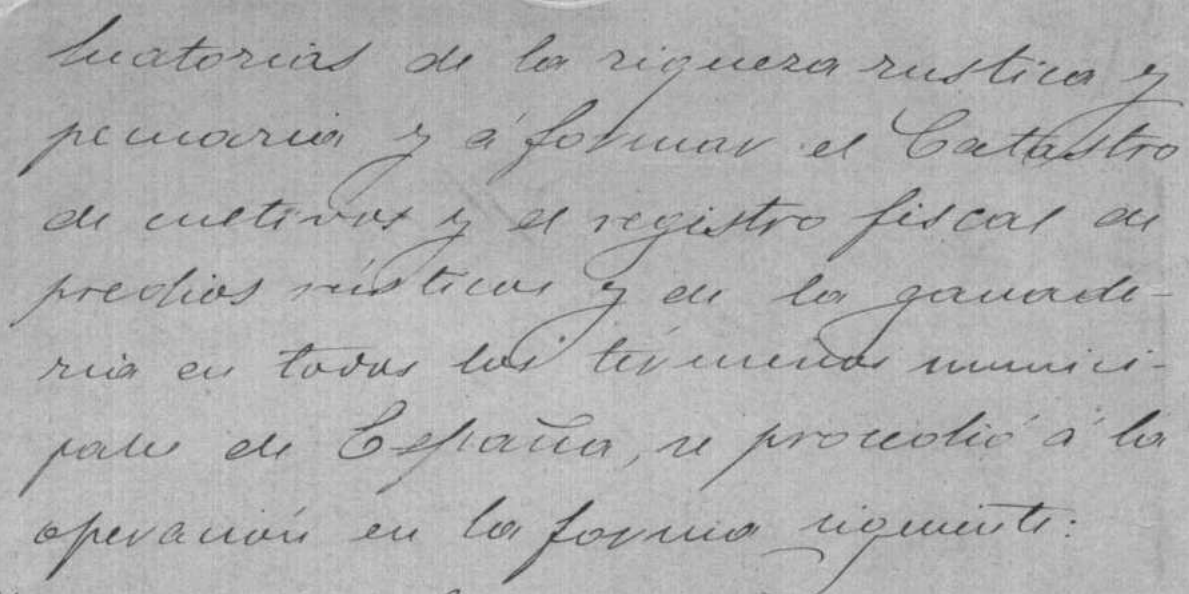 luatorias de la riqueza rustica y
pecuaria y á formar el Catastro
de cultivos y el registro fiscal de
predios rústicos y de la ganade-
ria en todos los términos munici-
pales de España, se procedió á la
operación en la forma siguiente: